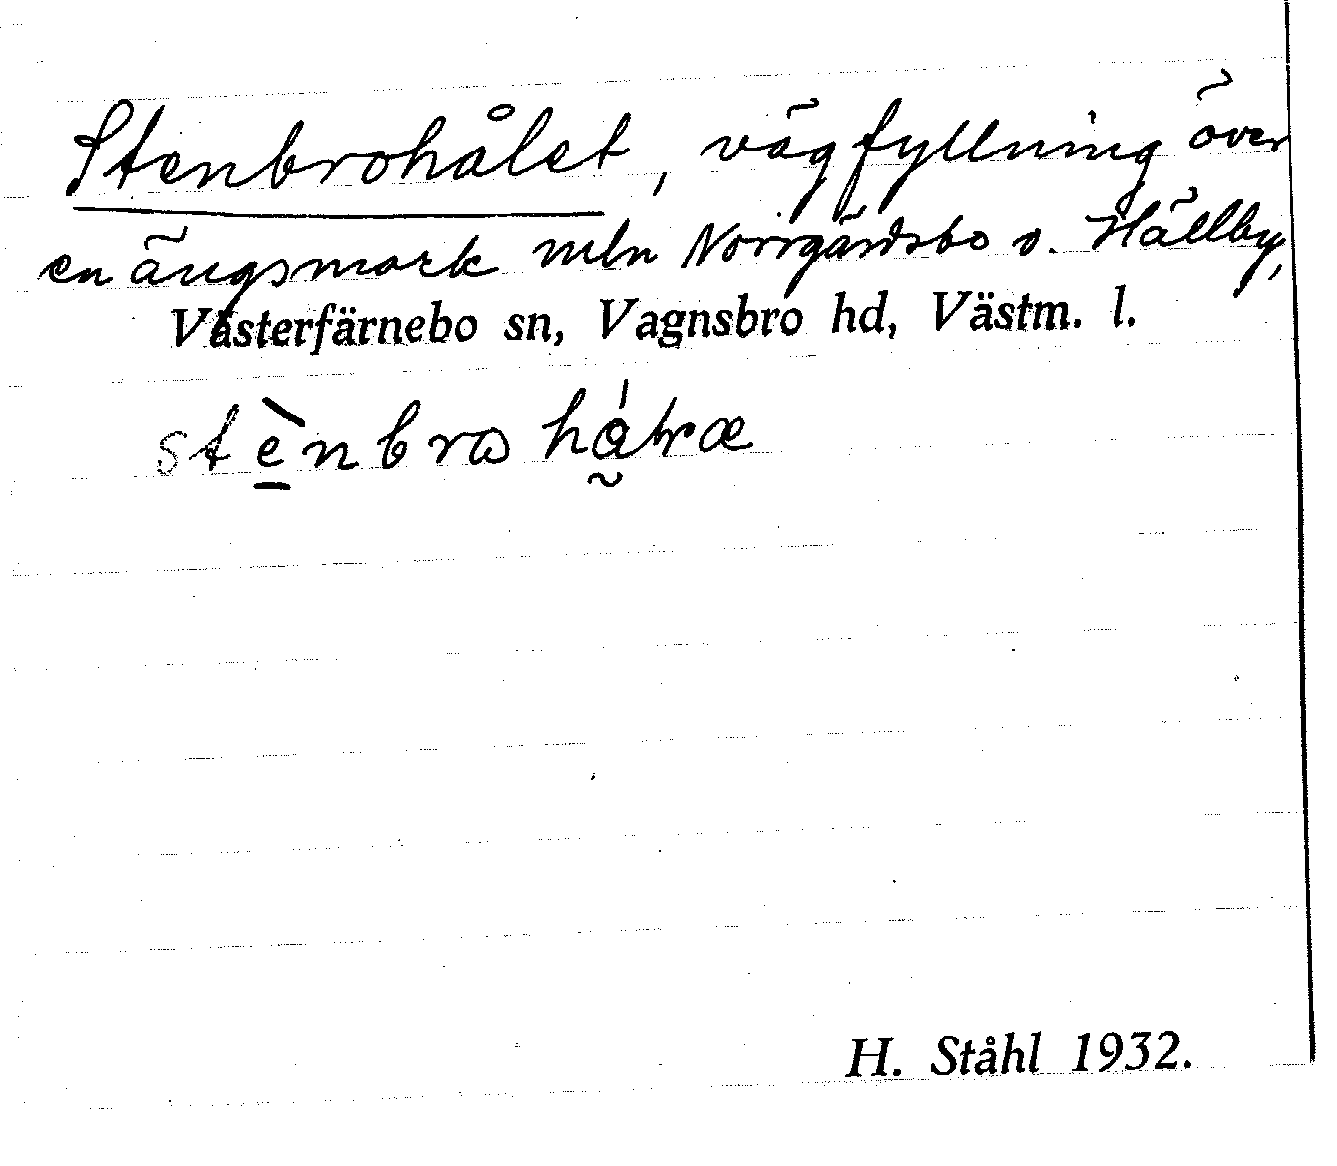 Stenbrohålet, vägfyllning över
en ängsmark mln Norrgärdsbo o. Hällby,
Västerfärnebo sn, Vagnsbro hd, Västm. l.
H. Ståhl 1932.